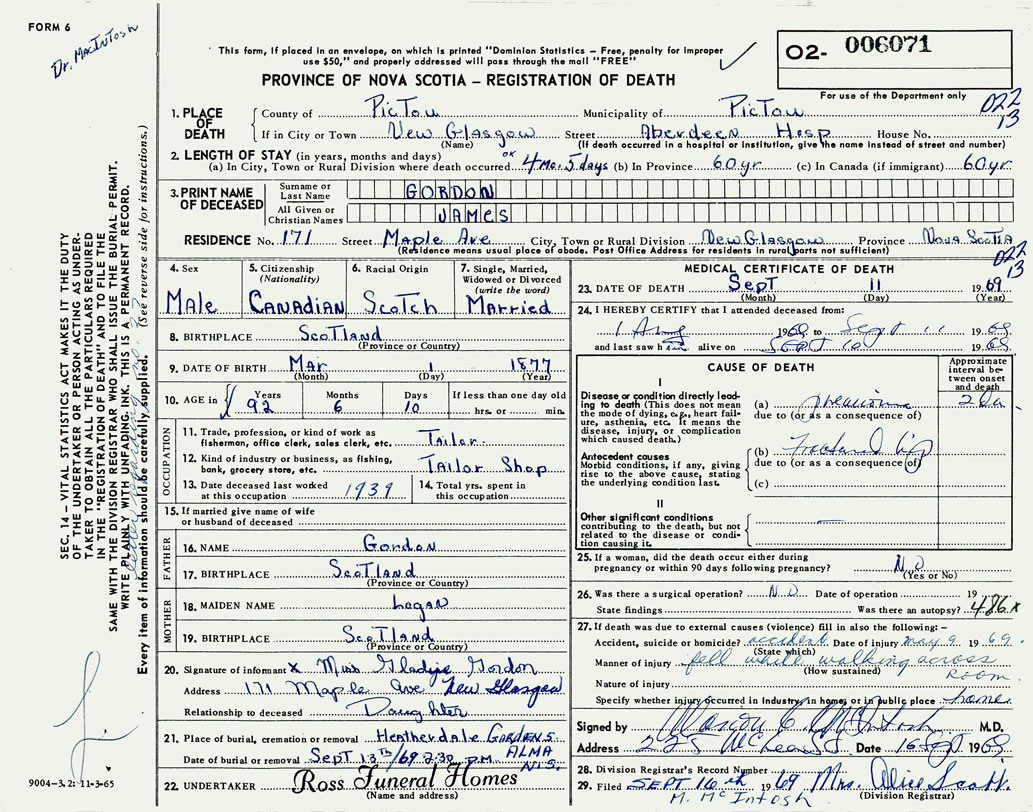 FORM 6
Dr. MacIntosh
This form, if placed in an envelope, on which is printed "Dominion Statistics – Free, penalty for improper
use $50," and properly addressed will pass through the mail "FREE"
PROVINCE OF NOVA SCOTIA – REGISTRATION OF DEATH
02- 006071
For use of the Department only
022
13
1. PLACE OF DEATH { County of PicTou Municipality of PicTou
If in City or Town New Glasgow Street Aberdeen Hosp House No.
(Name) (If death occurred in a hospital or institution, give the name instead of street and number)
2. LENGTH OF STAY (in years, months and days)
(a) In City, Town or Rural Division where death occurred 4 Mo. 5 days (b) In Province 60 yr. (c) In Canada (if immigrant) 60 yr.
3. PRINT NAME OF DECEASED { Surname or Last Name GORDON
All Given or Christian Names JAMES
RESIDENCE No. 171 Street Maple Ave City, Town or Rural Division New Glasgow Province Nova Scotia
(Residence means usual place of abode. Post Office Address for residents in rural parts not sufficient)
022
13
4. Sex Male
5. Citizenship (Nationality) CANADIAN
6. Racial Origin Scotch
7. Single, Married, Widowed or Divorced (write the word) Married
8. BIRTHPLACE Scotland
(Province or Country)
9. DATE OF BIRTH Mar 1 1877
(Month) (Day) (Year)
10. AGE in { Years 92 Months 6 Days 10 If less than one day old hrs. or min.
OCCUPATION
11. Trade, profession, or kind of work as fisherman, office clerk, sales clerk, etc. Tailor.
12. Kind of industry or business, as fishing, bank, grocery store, etc. Tailor Shop
13. Date deceased last worked at this occupation 1939
14. Total yrs. spent in this occupation
15. If married give name of wife or husband of deceased
FATHER
16. NAME Gordon
17. BIRTHPLACE Scotland
(Province or Country)
MOTHER
18. MAIDEN NAME Logan
19. BIRTHPLACE Scotland
(Province or Country)
20. Signature of informant X Miss Gladys Gordon
Address 171 Maple Ave New Glasgow
Relationship to deceased Daughter
21. Place of burial, cremation or removal Heatherdale GARDENS
ALMA N.S.
Date of burial or removal Sept 13th/69 2:30 P.M.
22. UNDERTAKER Ross Funeral Homes
(Name and address)
MEDICAL CERTIFICATE OF DEATH
23. DATE OF DEATH Sept 11 1969
(Month) (Day) (Year)
24. I HEREBY CERTIFY that I attended deceased from:
1 Aug 1969 to Sept 11 1969
and last saw him alive on Sept 10 1969
CAUSE OF DEATH
Approximate interval between onset and death
I
Disease or condition directly leading to death (This does not mean the mode of dying, e.g., heart failure, asthenia, etc. It means the disease, injury, or complication which caused death.)
(a) pneumonia
due to (or as a consequence of)
Antecedent causes
Morbid conditions, if any, giving rise to the above cause, stating the underlying condition last.
(b) Fractured hip
due to (or as a consequence of)
(c)
II
Other significant conditions contributing to the death, but not related to the disease or condition causing it.
25. If a woman, did the death occur either during pregnancy or within 90 days following pregnancy? NO
(Yes or No)
26. Was there a surgical operation? NO Date of operation 19
State findings Was there an autopsy? 486X
27. If death was due to external causes (violence) fill in also the following:–
Accident, suicide or homicide? accident Date of injury may 9 1969.
(State which)
Manner of injury fell while walking across room.
(How sustained)
Nature of injury
Specify whether injury occurred in Industry, in home, or in public place home
Signed by M.D.
Address Date 16 Sept 1969
28. Division Registrar's Record Number
29. Filed SEPT 16th 1969 Mrs. Alice Scott.
(Division Registrar)
M. McIntosh
SEC. 14 – VITAL STATISTICS ACT MAKES IT THE DUTY
OF THE UNDERTAKER OR PERSON ACTING AS UNDER-
TAKER TO OBTAIN ALL THE PARTICULARS REQUIRED
IN THE "REGISTRATION OF DEATH" AND TO FILE THE
SAME WITH THE DIVISION REGISTRAR WHO SHALL ISSUE THE BURIAL PERMIT.
WRITE PLAINLY WITH UNFADING INK. THIS IS A PERMANENT RECORD.
Every item of information should be carefully supplied. (See reverse side for instructions.)
9004-3.2: 11-3-65